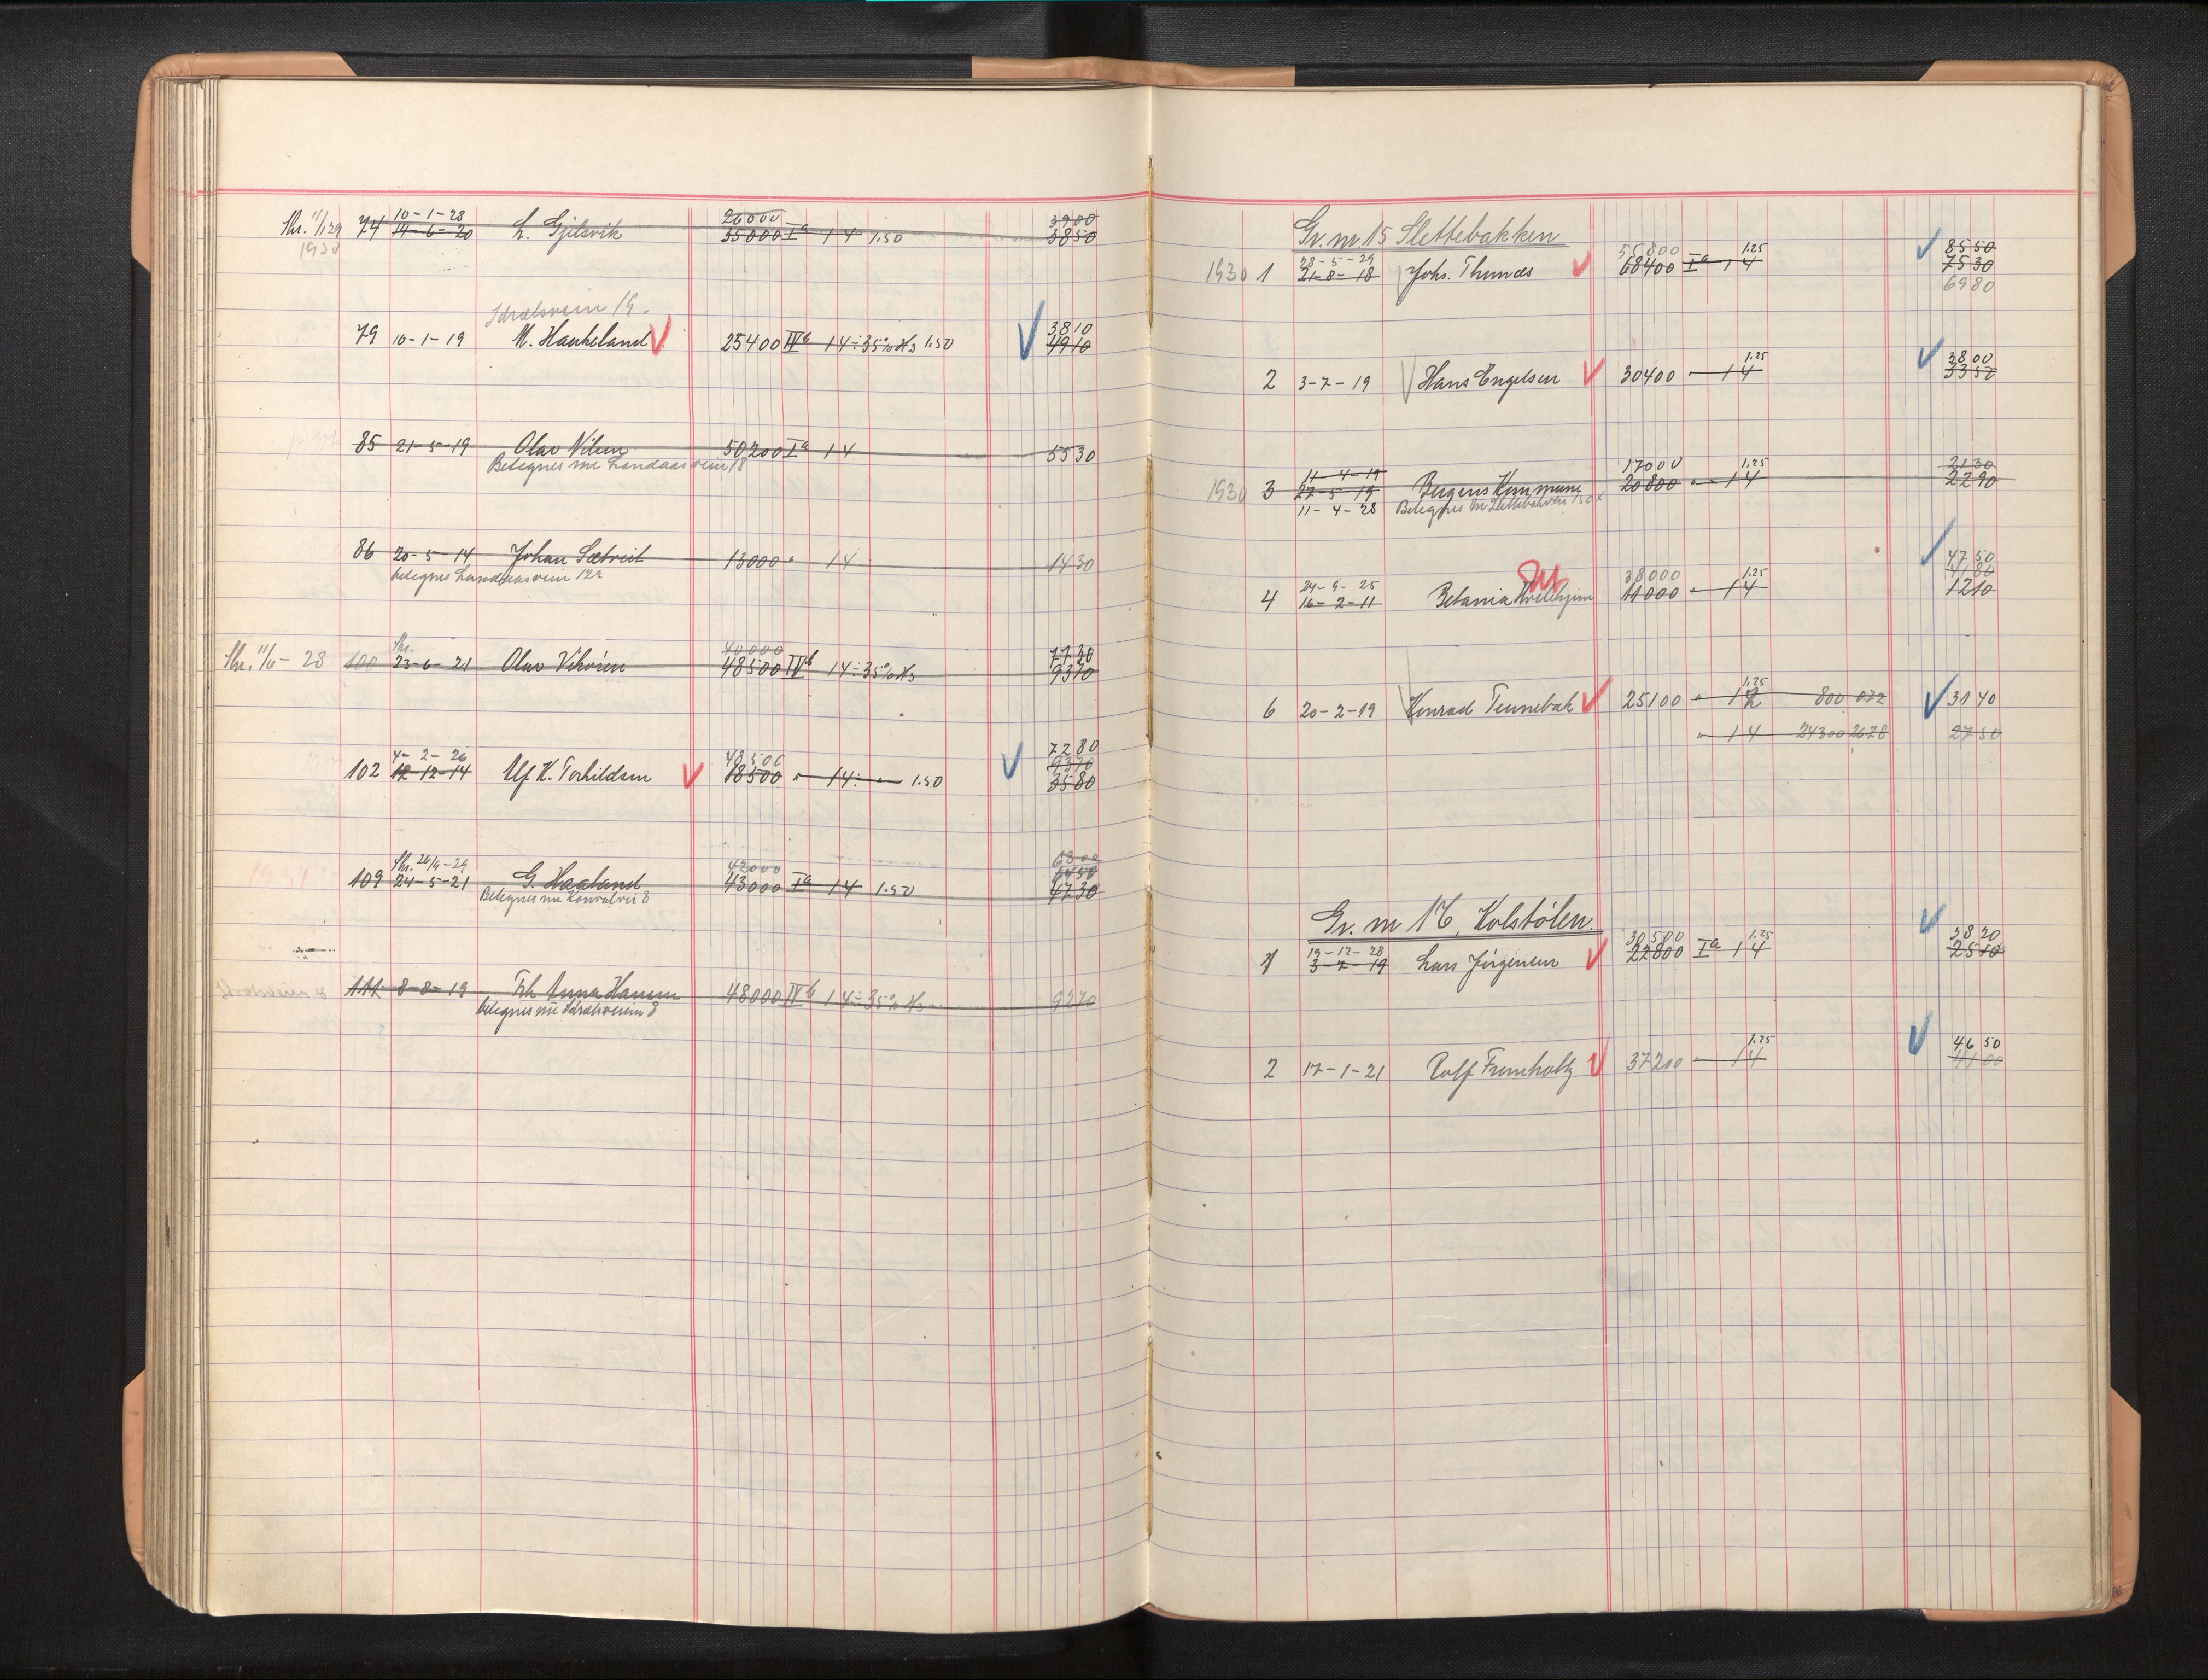 Skr. 11/1 29 74 10-1-28 26000 3900
1930 19-6-20 L. Gjelsvik 35000 Iª 14 1.50 3850
Idrætsveien 19.
79 10-1-19 M. Haukeland 25400 IVb 14 ÷ 35% H3 1.50 3810
4910
85 21-5-19 Olav Nilsen 50200 Iª 14 5530
Betegnes nu Landaasveien 18
86 20-5-14 Johan Sætveit 13000 " 14 1430
betegnes Landaasveien 12a
Skr. 11/6-28 100 Skr. 40000 7730
23-6-21 Olav Vikøren 48500 IVb 14 ÷ 35% H3 9370
4-2-26 48500 7280
102 12-12-14 Alf K. Torkildsen 18500 " 14 ÷ 1.50 9370
3580
Skr. 26/9-29 42000 6300
109 24-5-21 G. Haaland 43000 Iª 14 1.50 6450
Betegnes nu Konvalvei 8 4730
111 8-8-19 Frk Anna Hansen 48000 IVb 14 ÷ 35% H3 9270
betegnes nu Idrætsveien 8
Gr. nr. 15 Slettebakken
28-5-29 55800 1.25 8550
1930 1 21-8-18 Johs. Thunæs 68400 Iª 14 7530
6980
2 3-7-19 Hans Engelsen 30400 " 14 1.25 3800
3350
11-4-19 17000 1.25 2130
1930 3 22-5-19 Bergens Kommune 20800 " 14 2290
11-4-28 Betegnes nu Slettebakveien 150
24-9-25 38000 1.25 4750
4 16-2-11 Betania 11000 " 14 4180
1210
6 20-2-19 Konrad Tennebæk 25100 " 12 1.25 800 072 3140
" 14 24300 2678 2750
Gr. nr 16, Kolstølen.
19-12-28 30500 1.25 3820
1 3-7-19 Lars Jørgensen 22800 Iª 14 2510
2 17-1-21 Rolf Frumholtz 37200 14 1.25 4650
4100